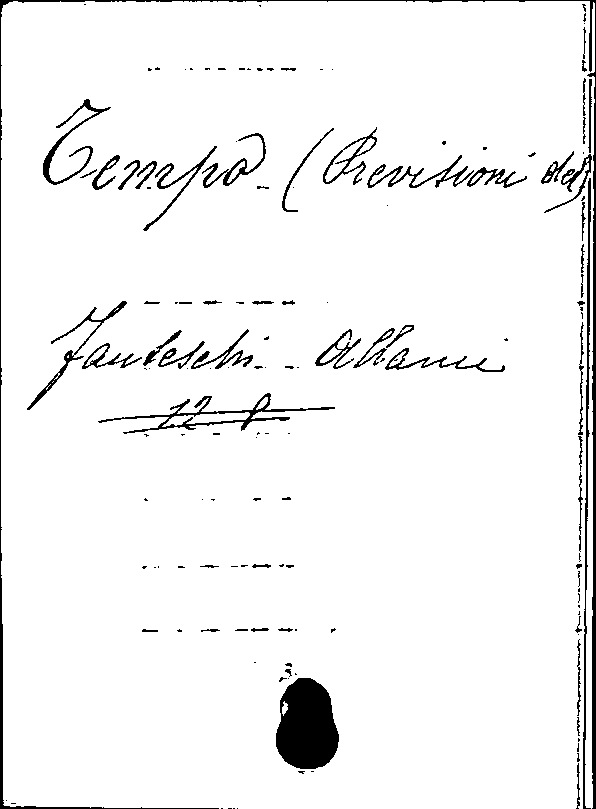 Tempo - (Previsioni del)
Fanteschi -
12 8